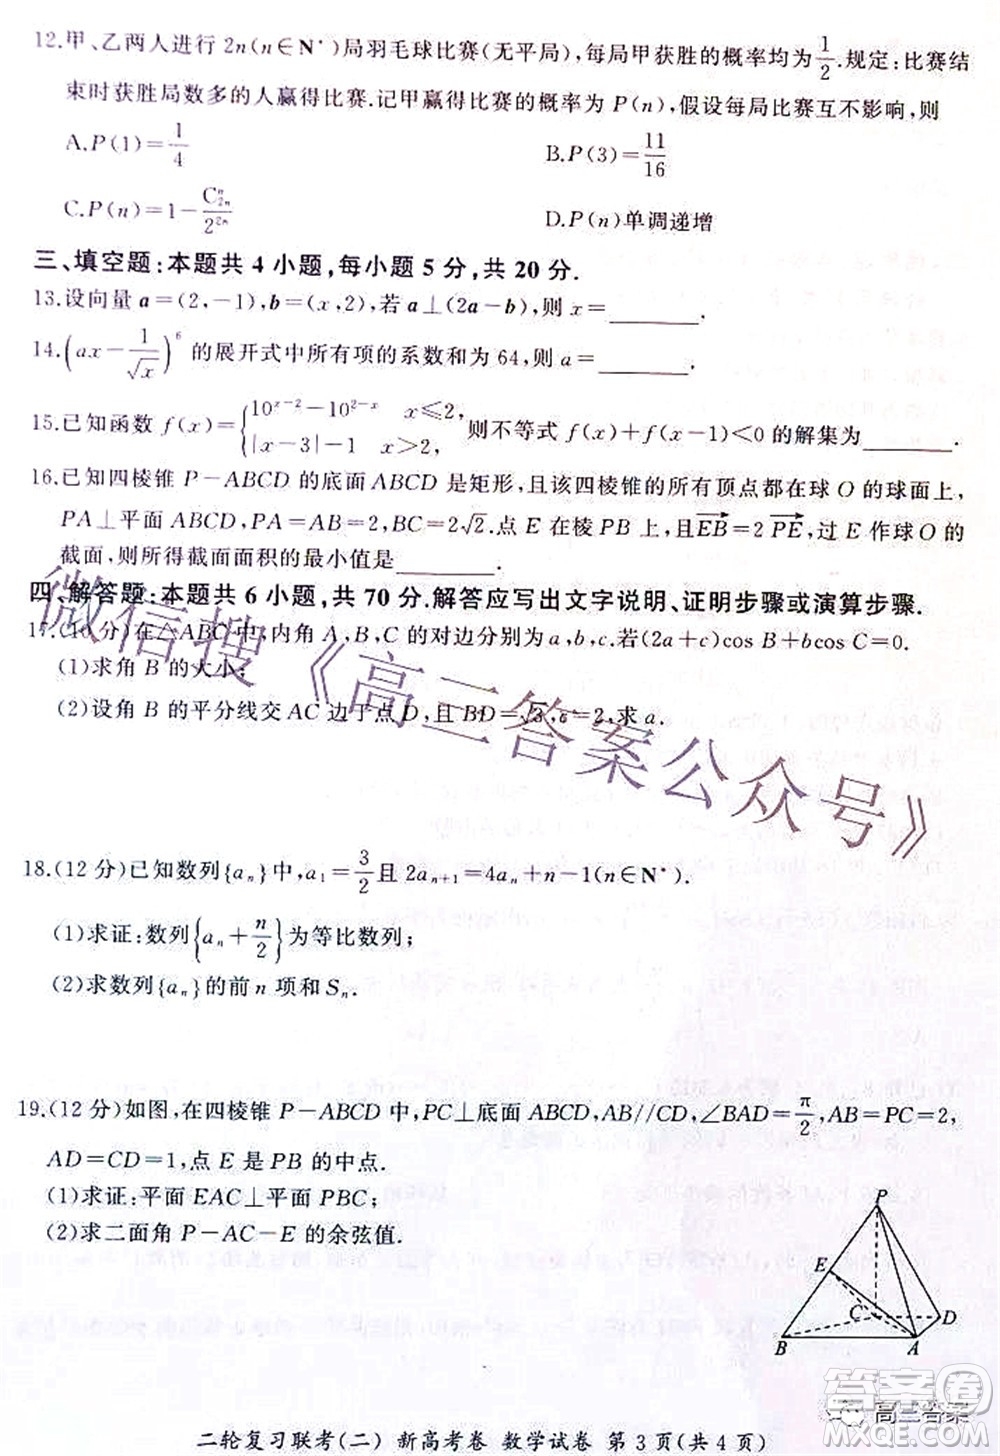 12.甲、乙两人进行 2n(n∈N*)局羽毛球比赛(无平局),每局甲获胜的概率均为1/2.规定:比赛结
束时获胜局数多的人赢得比赛.记甲赢得比赛的概率为 P(n),假设每局比赛互不影响,则
A.P(1)=1/4 B.P(3)=11/16
C.P(n)=1-C_{2n}^{n}/2^{2n} D.P(n)单调递增
三、填空题:本题共 4 小题,每小题 5 分,共 20 分.
13.设向量 a=(2,-1),b=(x,2),若 a⊥(2a-b),则 x=______.
14.(ax-1/√x)^6 的展开式中所有项的系数和为 64,则 a=______.
15.已知函数 f(x)={10^{x-2}-10^{2-x} x≤2, |x-3|-1 x>2, 则不等式 f(x)+f(x-1)<0 的解集为______.
16.已知四棱锥 P-ABCD 的底面 ABCD 是矩形,且该四棱锥的所有顶点都在球 O 的球面上,
PA⊥平面 ABCD,PA=AB=2,BC=2√2.点 E 在棱 PB 上,且EB=2 PE,过 E 作球 O 的
截面,则所得截面面积的最小值是______.
四、解答题:本题共 6 小题,共 70 分.解答应写出文字说明、证明步骤或演算步骤.
17.(10 分)在△ABC 中,内角 A,B,C 的对边分别为 a,b,c.若(2a+c)cos B+bcos C=0.
(1)求角 B 的大小;
(2)设角 B 的平分线交 AC 边于点 D,且 BD=√3,c=2,求 a.
微信搜《高三答案公众号》
18.(12 分)已知数列{a_n}中,a_1=3/2且 2a_{n+1}=4a_n+n-1(n∈N*).
(1)求证:数列{a_n+n/2}为等比数列;
(2)求数列{a_n}的前 n 项和 S_n.
19.(12 分)如图,在四棱锥 P-ABCD 中,PC⊥底面 ABCD,AB//CD,∠BAD=π/2,AB=PC=2,
AD=CD=1,点 E 是 PB 的中点.
(1)求证:平面 EAC⊥平面 PBC;
(2)求二面角 P-AC-E 的余弦值.
P
E
C
D
B
A
二轮复习联考(二) 新高考卷 数学试卷 第 3 页(共 4 页)
高三答案
答案圈
MXQE.COM